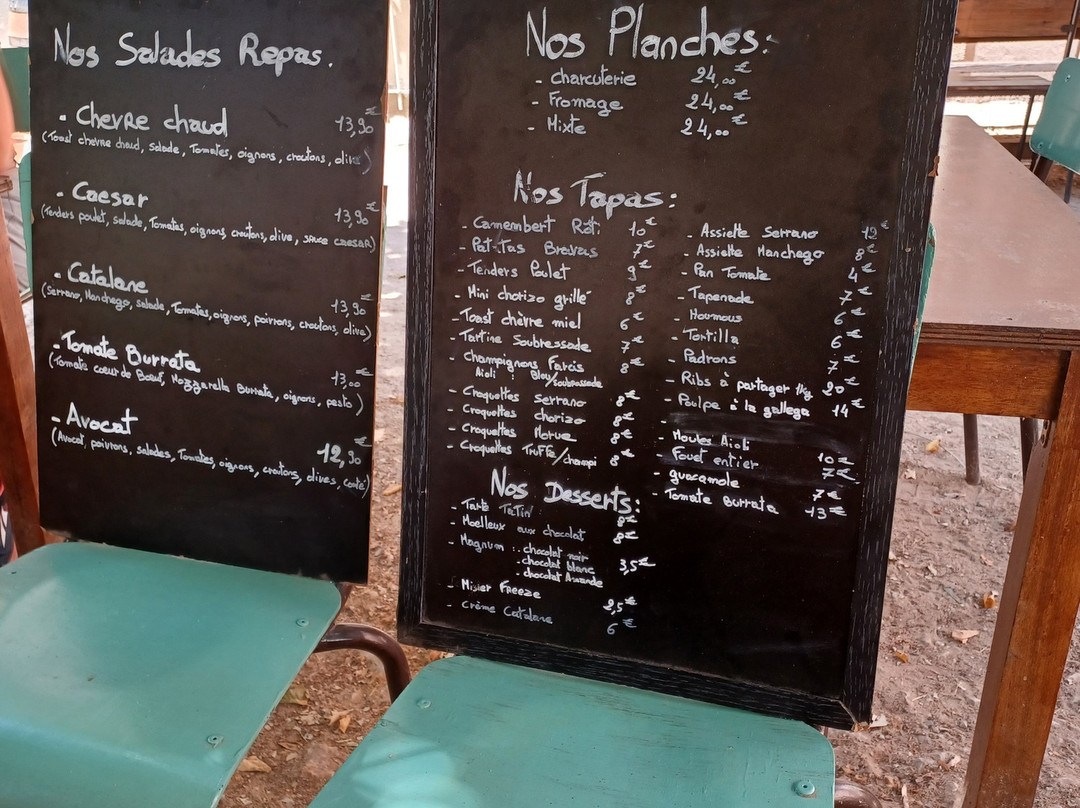 Nos Salades Repas.
- Chevre chaud 13,90€
(Toast chevre chaud, salade, Tomates, oignons, croutons, olive)
- Caesar 13,90€
(Tenders poulet, salade, Tomates, oignons, croutons, olive, sauce caesar)
- Catalane 13,90€
(Serrano, Manchego, salade, Tomates, oignons, poivrons, croutons, olive)
- Tomate Burrata 13,00€
(Tomate coeur de Boeuf, Mozzarella Burrata, oignons, pesto)
- Avocat 12,90€
(Avocat, poivrons, salades, Tomates, oignons, croutons, olives, comté)
Nos Planches:
- charcuterie 24,00€
- Fromage 24,00€
- Mixte 24,00€
Nos Tapas:
- Camembert Roti 10€
- Patatas Bravas 7€
- Tenders Poulet 9€
- Mini chorizo grillé 8€
- Toast chèvre miel 6€
- Tartine Soubressade 7€
- Champignons Farcis 8€
Aioli : Bleu/soubressade
- Croquettes Serrano 8€
- Croquettes chorizo 8€
- Croquettes Morue 8€
- Croquettes Truffe/champi 8€
- Assiette Serrano 12€
- Assiette Manchego 8€
- Pan Tomate 4€
- Tapenade 7€
- Houmous 6€
- Tortilla 6€
- Padrons 7€
- Ribs à partager 1kg 20€
- Poulpe à la gallega 14€
-
- Moules Aioli 10€
- Fouet entier 7€
- guacamole 7€
- Tomate Burrata 13€
Nos Desserts:
- Tarte Tatin 8€
- Moelleux aux chocolat 8€
- Magnum : . chocolat noir
. chocolat blanc 3,5€
. chocolat Amande
- Mister Freeze 2,5€
- Crème Catalane 6€